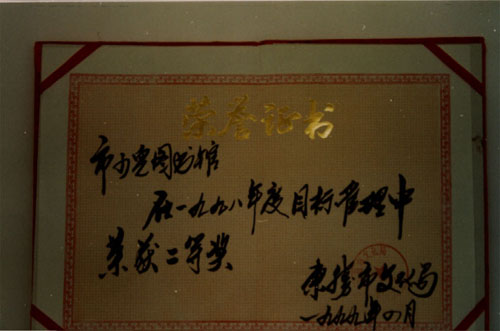 荣誉证书
市少儿图书馆
在一九九八年度目标管理中
荣获二等奖
东胜市文化局
一九九九年四月